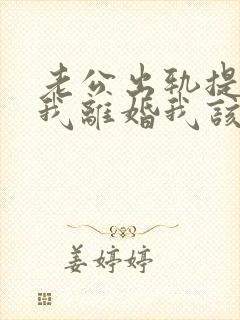 老公出轨提
我離婚我該
姜婷婷